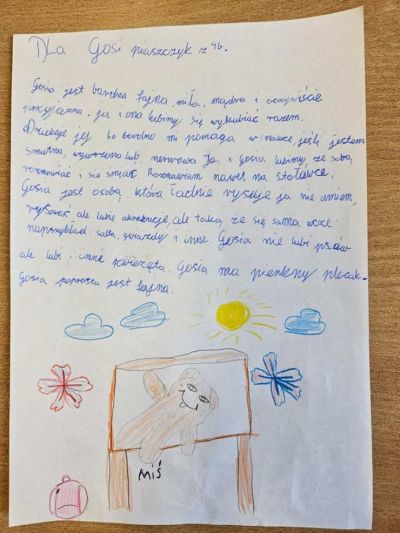 DLa Gosi piaszczyk z 4b.
Gosia jest bardzo fajna, miła, mądra i oczywiście
przyjazna. ja i ona lubimy się wygłupiać razem.
Dziekuje jej bo bardzo mi pomaga w nauce, jeśli jestem
smutna, lub nerwowa Ja i Gosia lubimy ze sobą
rozmawiać i się śmiać. Rozmawiam nawet na stołówce.
Gosia jest osobą, która ładnie rysuje ja nie umiem,
rysować ale lubie akrobacje, ale taką, że się sama ucze
naprzykład: salta, gwiazdy i inne. Gosia nie lubi psów
ale lubi inne zwierzęta. Gosia ma pienkny plecak.
Gosia poprostu jest fajna.
Miś